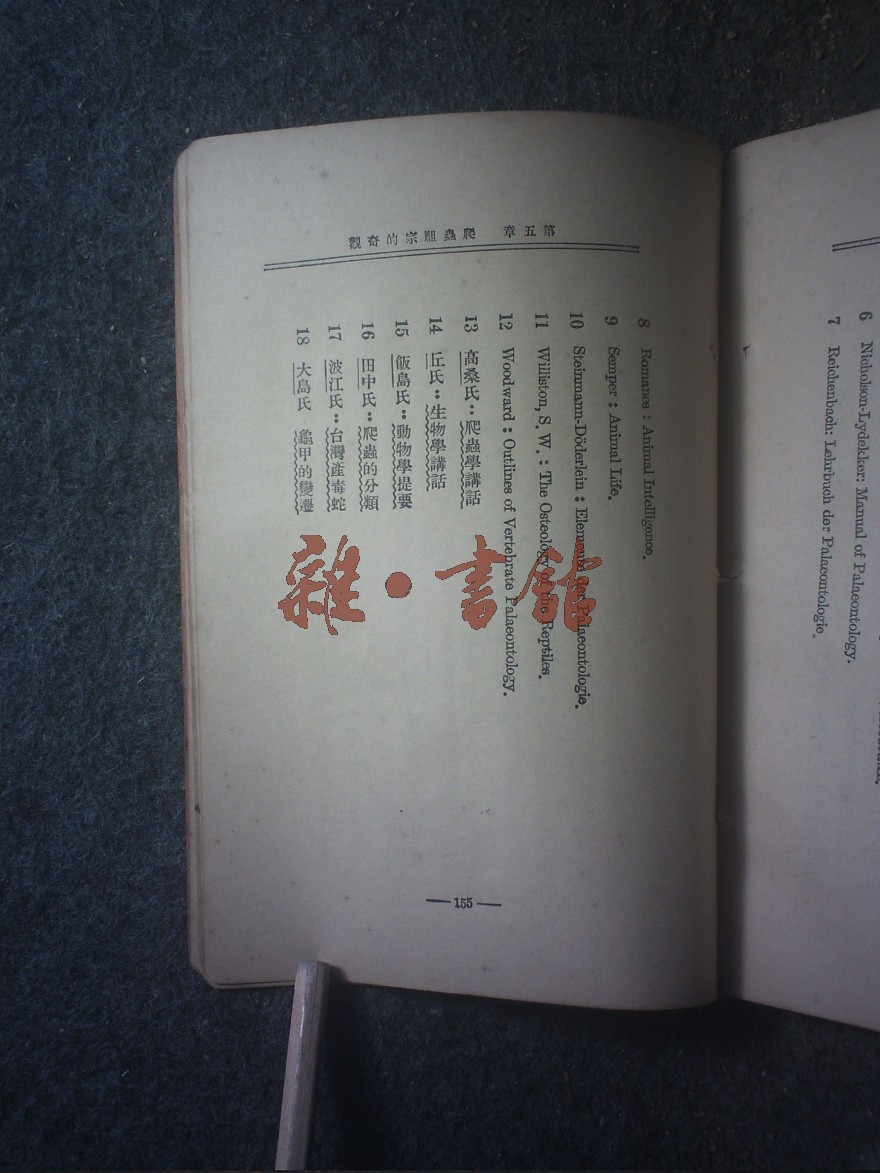 6 Nicholson-Lydekker: Manual of Palaeontology.
7 Reichenbach: Lehrbuch der Palaeontologie.
第五章 爬蟲祖宗的奇觀
8 Romanes : Animal Intelligence.
9 Semper : Animal Life.
10 Steinmann-Döderlein : Elemente der Palaeontologie.
11 Williston, S. W. : The Osteology of the Reptiles.
12 Woodward : Outlines of Vertebrate Palaeontology.
13 高桑氏：爬蟲學講話
14 丘氏：生物學講話
15 飯島氏：動物學提要
16 田中氏：爬蟲的分類
17 波江氏：台灣產毒蛇
18 大島氏 龜甲的變遷
— 155 —
雜·書館